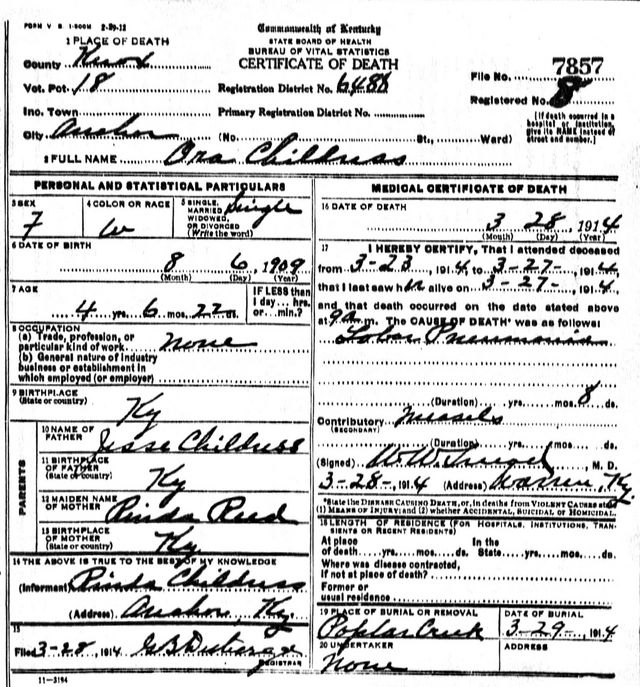 FORM V. S. 1-500M 2-29-12
Commonwealth of Kentucky
STATE BOARD OF HEALTH
BUREAU OF VITAL STATISTICS
CERTIFICATE OF DEATH
1 PLACE OF DEATH
County Knox
Vot. Pct. 18
Registration District No. 6488
File No. 7857
Inc. Town
Primary Registration District No.
Registered No. 8
City Anchor (No. St., Ward)
[If death occurred in a hospital or institution, give its NAME instead of street and number.]
2 FULL NAME Ora Childress
PERSONAL AND STATISTICAL PARTICULARS
3 SEX F
4 COLOR OR RACE W
5 SINGLE, MARRIED, WIDOWED, OR DIVORCED (Write the word) Single
6 DATE OF BIRTH
8 6, 1909
(Month) (Day) (Year)
7 AGE
4 yrs. 6 mos. 22 ds.
IF LESS than 1 day... hrs. or... min.?
8 OCCUPATION
(a) Trade, profession, or particular kind of work none
(b) General nature of industry business or establishment in which employed (or employer)
9 BIRTHPLACE
(State or country) Ky
PARENTS
10 NAME OF FATHER Jesse Childress
11 BIRTHPLACE OF FATHER (State or country) Ky
12 MAIDEN NAME OF MOTHER Rinda Reed
13 BIRTHPLACE OF MOTHER (State or country) Ky
14 THE ABOVE IS TRUE TO THE BEST OF MY KNOWLEDGE
(Informant) Rinda Childress
(Address) Anchor, Ky.
15
Filed 3-28, 1914
REGISTRAR
11-3194
MEDICAL CERTIFICATE OF DEATH
16 DATE OF DEATH
3 28, 1914
(Month) (Day) (Year)
17 I HEREBY CERTIFY, That I attended deceased
from 3-23, 1914, to 3-27-, 1914,
that I last saw her alive on 3-27-, 1914,
and that death occurred on the date stated above
at 9 a. m. The CAUSE OF DEATH* was as follows:
Lobar Pneumonia
(Duration) yrs. mos. 8 ds.
Contributory Measels
(SECONDARY)
(Duration) yrs. mos. ds.
(Signed) W. W. , M. D.
3-28-, 1914 (Address) Warren, Ky.
*State the DISEASE CAUSING DEATH, or, in deaths from VIOLENT CAUSES state (1) MEANS OF INJURY; and (2) whether ACCIDENTAL, SUICIDAL or HOMICIDAL.
18 LENGTH OF RESIDENCE (FOR HOSPITALS, INSTITUTIONS, TRANSIENTS OR RECENT RESIDENTS)
At place of death yrs. mos. ds. In the State yrs. mos. ds.
Where was disease contracted, if not at place of death?
Former or usual residence
19 PLACE OF BURIAL OR REMOVAL Poplar Creek
DATE OF BURIAL 3-29-, 1914
20 UNDERTAKER none
ADDRESS